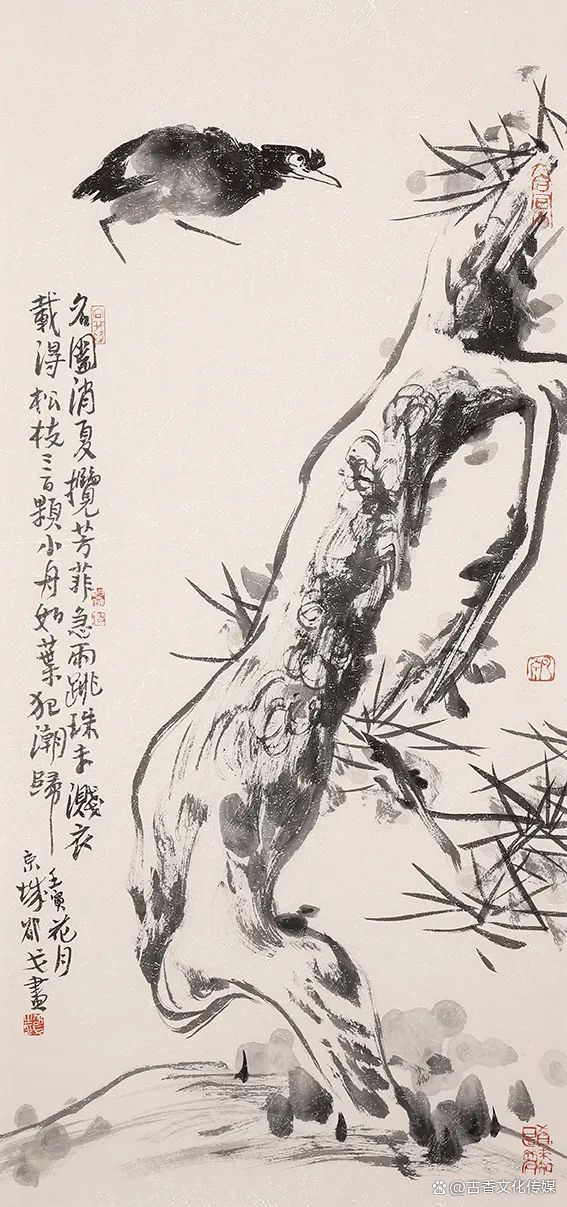 名園消夏攬芳菲急雨跳珠未濺衣
載得松枝三百顆小舟如葉犯潮歸
壬寅花月
京城戈畫
@古香文化传媒